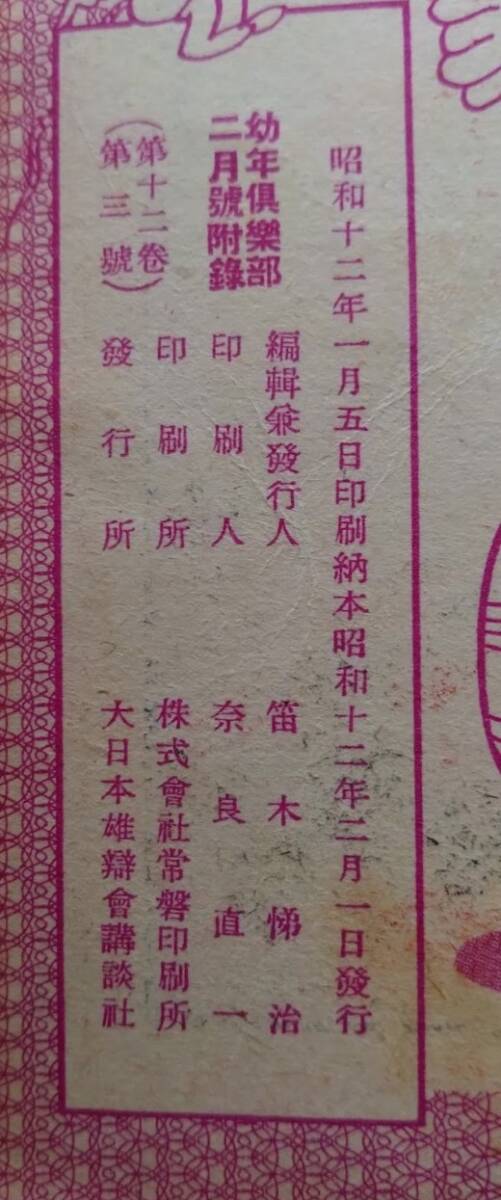 昭和十二年一月五日印刷納本昭和十二年二月一日發行
幼年俱樂部
二月號附錄
(第十二卷)
(第三號)
編輯兼發行人 笛木悌治
印刷人 奈良直一
印刷所 株式會社常磐印刷所
發行所 大日本雄辯會講談社